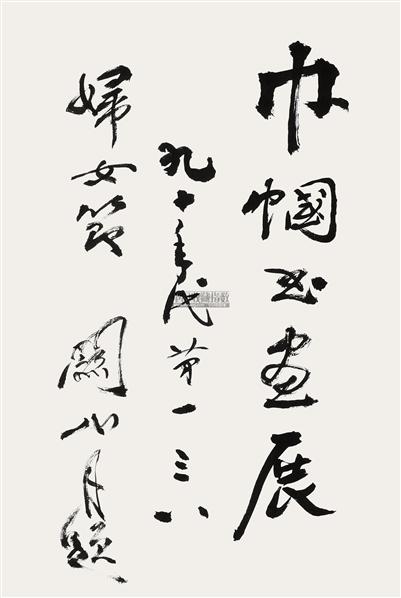 巾帼书画展
九十年代第一三八
婦女節 關山月題